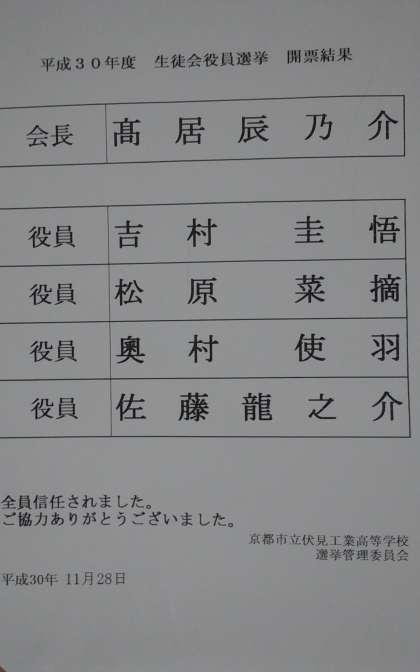 平成３０年度　生徒会役員選挙　開票結果
会長　髙居辰乃介
役員　吉村　圭悟
役員　松原　菜摘
役員　奥村　使羽
役員　佐藤龍之介
全員信任されました。
ご協力ありがとうございました。
京都市立伏見工業高等学校
選挙管理委員会
平成30年 11月28日